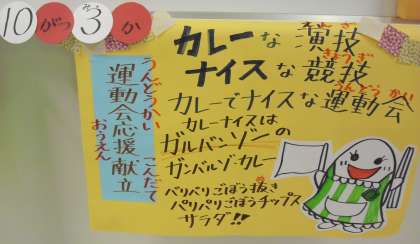 10がつ3か
みっ
カレーな演技
えんぎ
ナイスな競技
きょうぎ
カレーでナイスな運動会
うんどうかい
カレーナイスは
ガルバンゾーの
ガンバルゾ・カレー
バリバリごぼう抜き
パリパリごぼうチップス
サラダ!!
運動会応援献立
うんどうかい
おうえん
こんだて